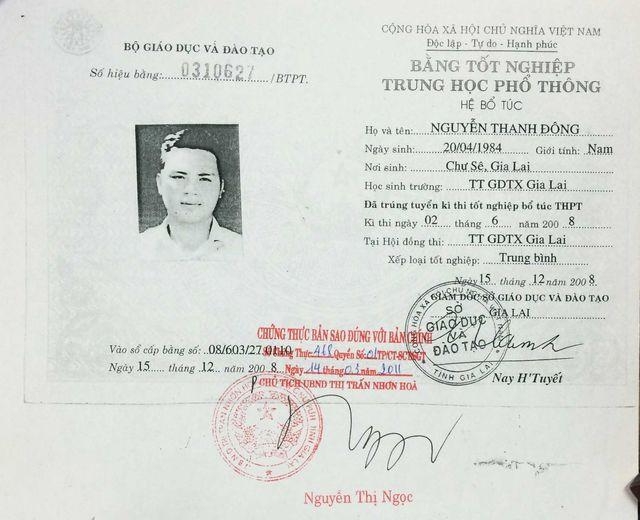 BỘ GIÁO DỤC VÀ ĐÀO TẠO
Số hiệu bằng: 0310627 /BTPT.
CỘNG HÒA XÃ HỘI CHỦ NGHĨA VIỆT NAM
Độc lập - Tự do - Hạnh phúc
BẰNG TỐT NGHIỆP
TRUNG HỌC PHỔ THÔNG
HỆ BỔ TÚC
Họ và tên: NGUYỄN THANH ĐÔNG
Ngày sinh: 20/04/1984 Giới tính: Nam
Nơi sinh: Chư Sê, Gia Lai
Học sinh trường: TT GDTX Gia Lai
Đã trúng tuyển kì thi tốt nghiệp bổ túc THPT
Kì thi ngày 02 tháng 6 năm 200 8
Tại Hội đồng thi: TT GDTX Gia Lai
Xếp loại tốt nghiệp: Trung bình
Ngày 15 tháng 12 năm 200 8
GIÁM ĐỐC SỞ GIÁO DỤC VÀ ĐÀO TẠO
GIA LAI
SỞ
GIÁO DỤC
VÀ
ĐÀO TẠO
TỈNH GIA LAI
Nay H'Tuyết
Vào sổ cấp bằng số: 08/603/27.0110
Ngày 15 tháng 12 năm 200 8
CHỨNG THỰC BẢN SAO ĐÚNG VỚI BẢN CHÍNH
Số Chứng Thực: Quyển Số: 01 TP/CT-SCT/SGT
Ngày 14 tháng 03 năm 2011
CHỦ TỊCH UBND THỊ TRẤN NHƠN HOÀ
Nguyễn Thị Ngọc